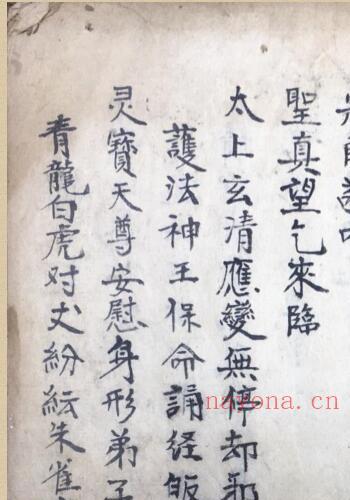 聖真望乞來臨
太上玄清應變無停却
護法神王保命誦经皈
灵寶天尊安慰身形弟子
青龍白虎对丈紛紜朱雀
nayona.cn